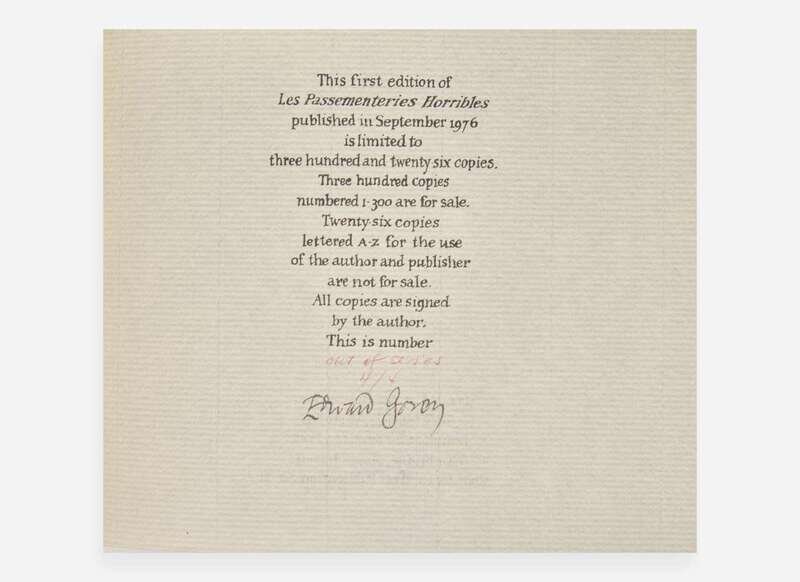 This first edition of
Les Passementeries Horribles
published in September 1976
is limited to
three hundred and twenty six copies.
Three hundred copies
numbered 1-300 are for sale.
Twenty-six copies
lettered A-Z for the use
of the author and publisher
are not for sale.
All copies are signed
by the author.
This is number
out of series
Edward Gorey